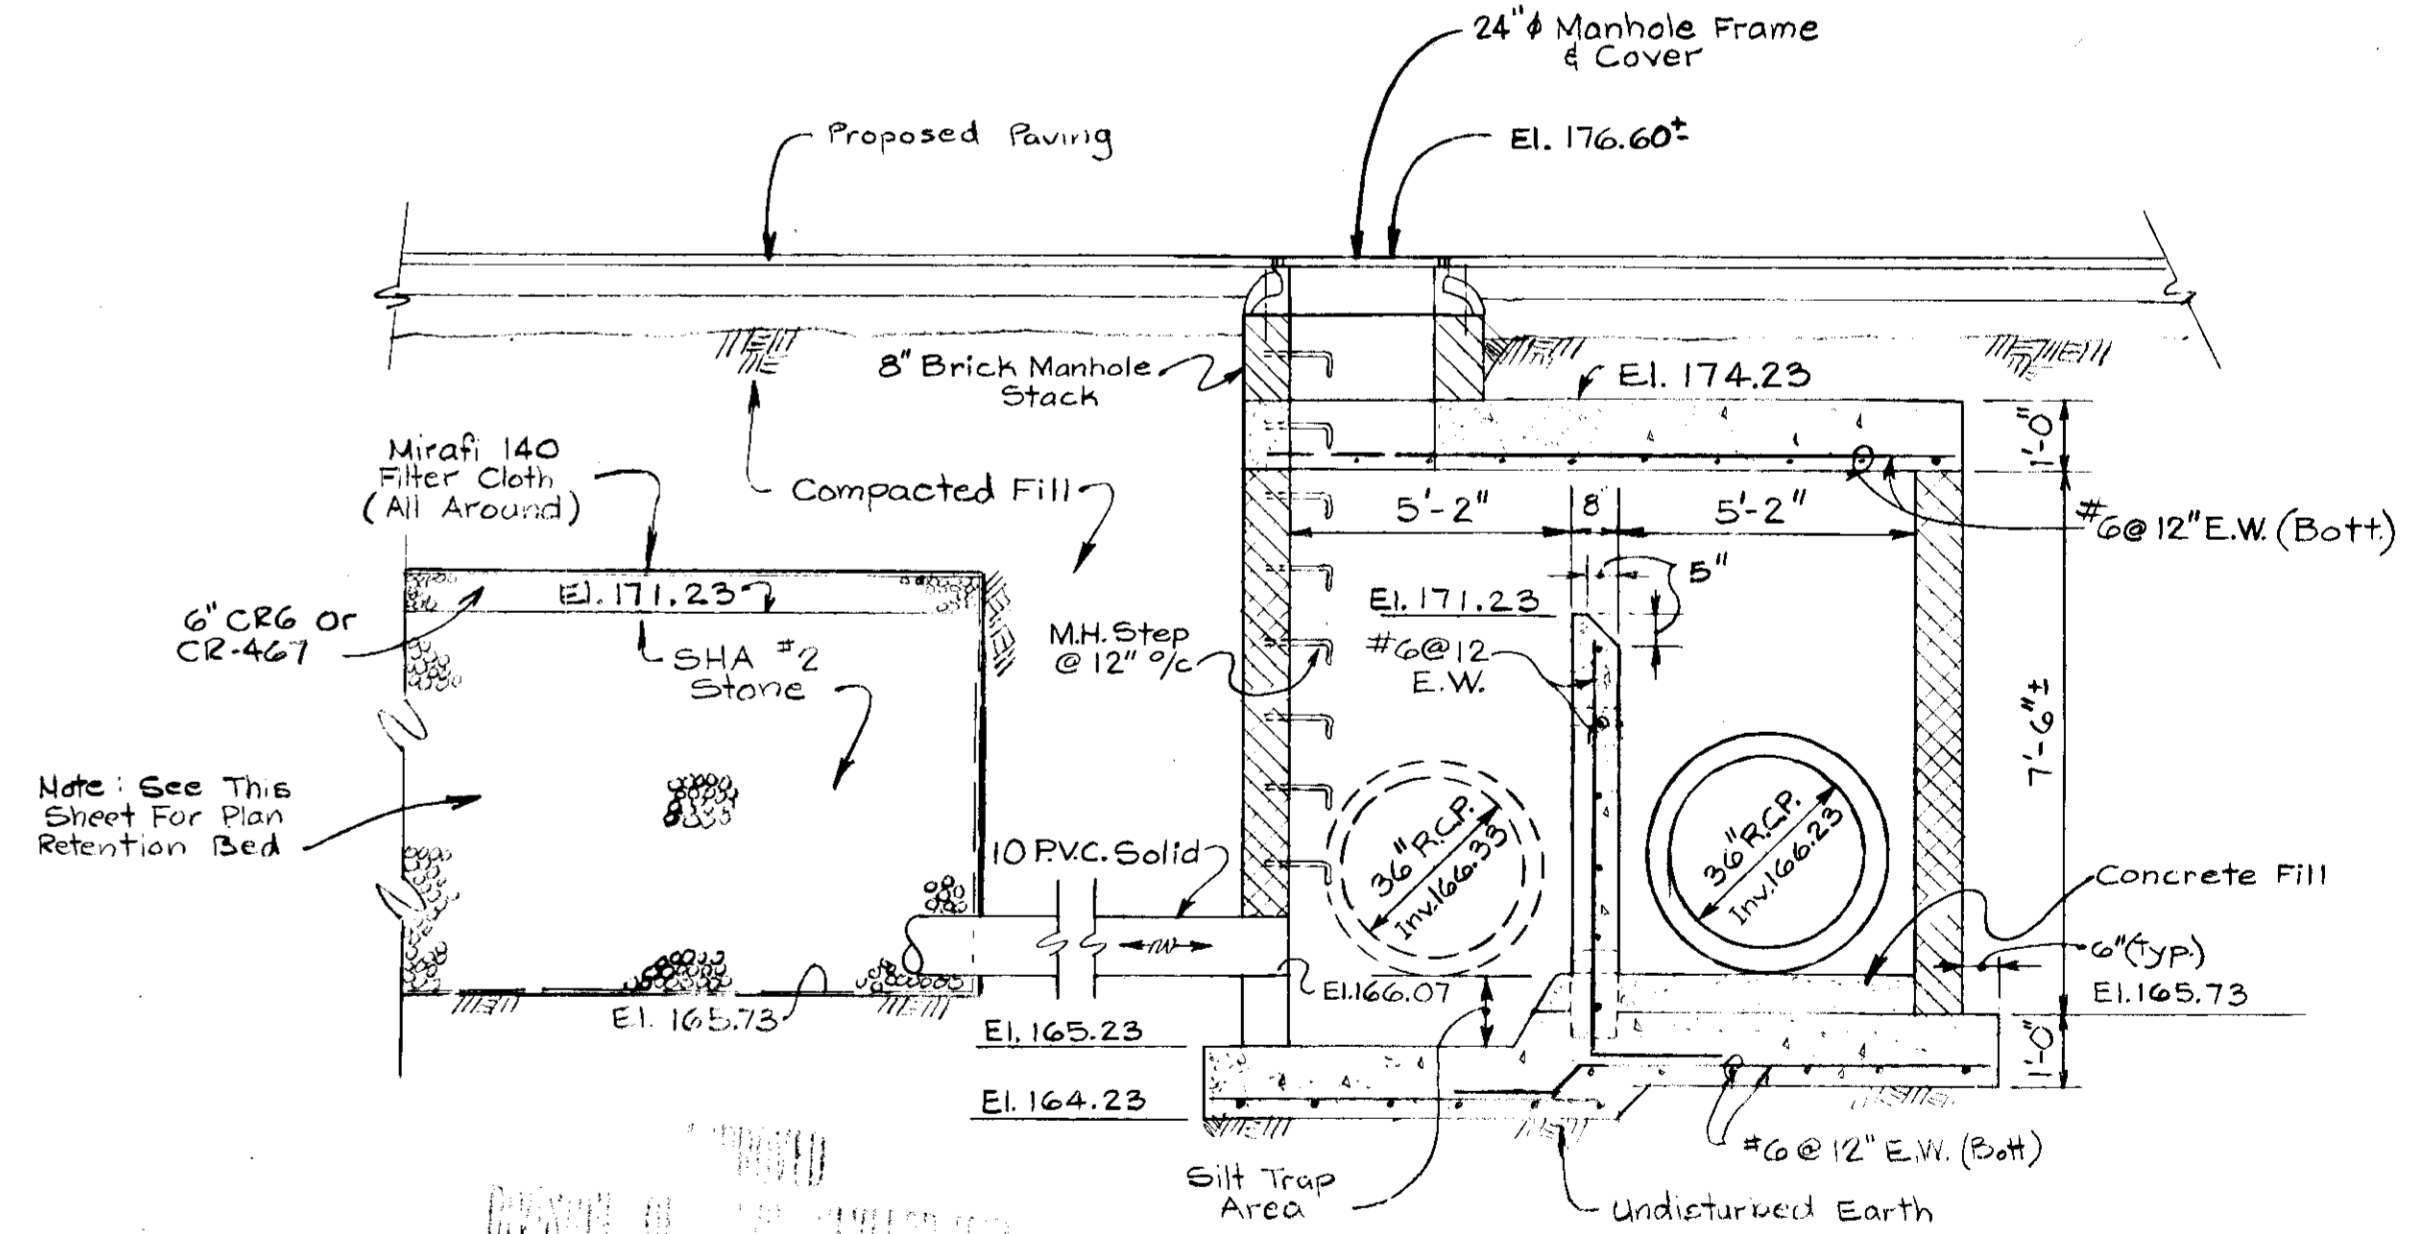 24"ɸ Manhole Frame
& Cover
Proposed Paving
El. 176.60±
8" Brick Manhole
Stack
El. 174.23
1'-0"
Mirafi 140
Filter Cloth
(All Around)
Compacted Fill
5'-2"
8
5'-2"
#6@12" E.W. (Bott.)
5"
El. 171.23
El. 171.23
6" CR6 or
CR-467
SHA #2
Stone
M.H. Step
@ 12" o/c
#6@12
E.W.
7'-6"±
Note: See This
Sheet For Plan
Retention Bed
10 P.V.C. Solid
36" R.C.P.
Inv. 166.33
36" R.C.P.
Inv. 166.23
Concrete Fill
6" (typ.)
El. 165.73
El. 166.07
El. 165.73
El. 165.23
1'-0"
El. 164.23
#6 @ 12" E.W. (Bott)
Silt Trap
Area
Undisturbed Earth